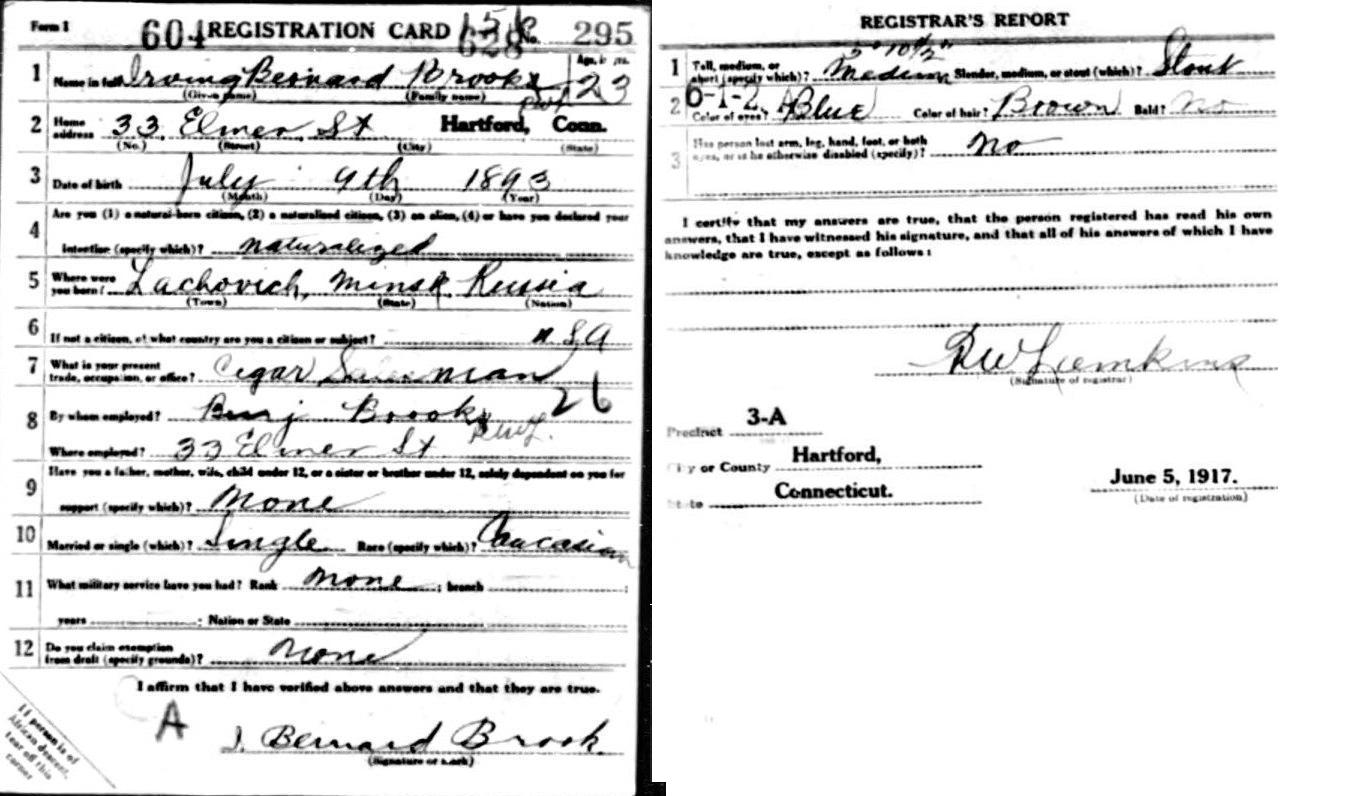 Form 1 604 REGISTRATION CARD 628 No. 295
1 Name in full Irving Bernard Brooks Age, in yrs. 23
(Given name) (Family name)
2 Home address 33 Elmer St Hartford, Conn.
(No.) (Street) (City) (State)
3 Date of birth July 9th 1893
(Month) (Day) (Year)
4 Are you (1) a natural-born citizen, (2) a naturalized citizen, (3) an alien, (4) or have you declared your
intention (specify which)? naturalized
5 Where were you born? Lachovich, Minsk Russia
(Town) (State) (Nation)
6 If not a citizen, of what country are you a citizen or subject? U.S.A
7 What is your present trade, occupation, or office? Cigar Salesman
26
8 By whom employed? Benj Brooks
Where employed? 33 Elmer St
9 Have you a father, mother, wife, child under 12, or a sister or brother under 12, solely dependent on you for
support (specify which)? None
10 Married or single (which)? Single Race (specify which)? Caucasian
11 What military service have you had? Rank None ; branch ;
years ; Nation or State
12 Do you claim exemption from draft (specify grounds)? None
I affirm that I have verified above answers and that they are true.
A
I. Bernard Brook
(Signature or mark)
If person is of
African descent,
tear off this
corner
REGISTRAR'S REPORT
5' 10 1/2"
1 Tall, medium, or short (specify which)? Medium Slender, medium, or stout (which)? Stout
6-1-2. A
2 Color of eyes? Blue Color of hair? Brown Bald? No
3 Has person lost arm, leg, hand, foot, or both eyes, or is he otherwise disabled (specify)? No
I certify that my answers are true, that the person registered has read his own
answers, that I have witnessed his signature, and that all of his answers of which I have
knowledge are true, except as follows:
(Signature of registrar)
Precinct 3-A
City or County Hartford,
State Connecticut.
June 5, 1917.
(Date of registration)